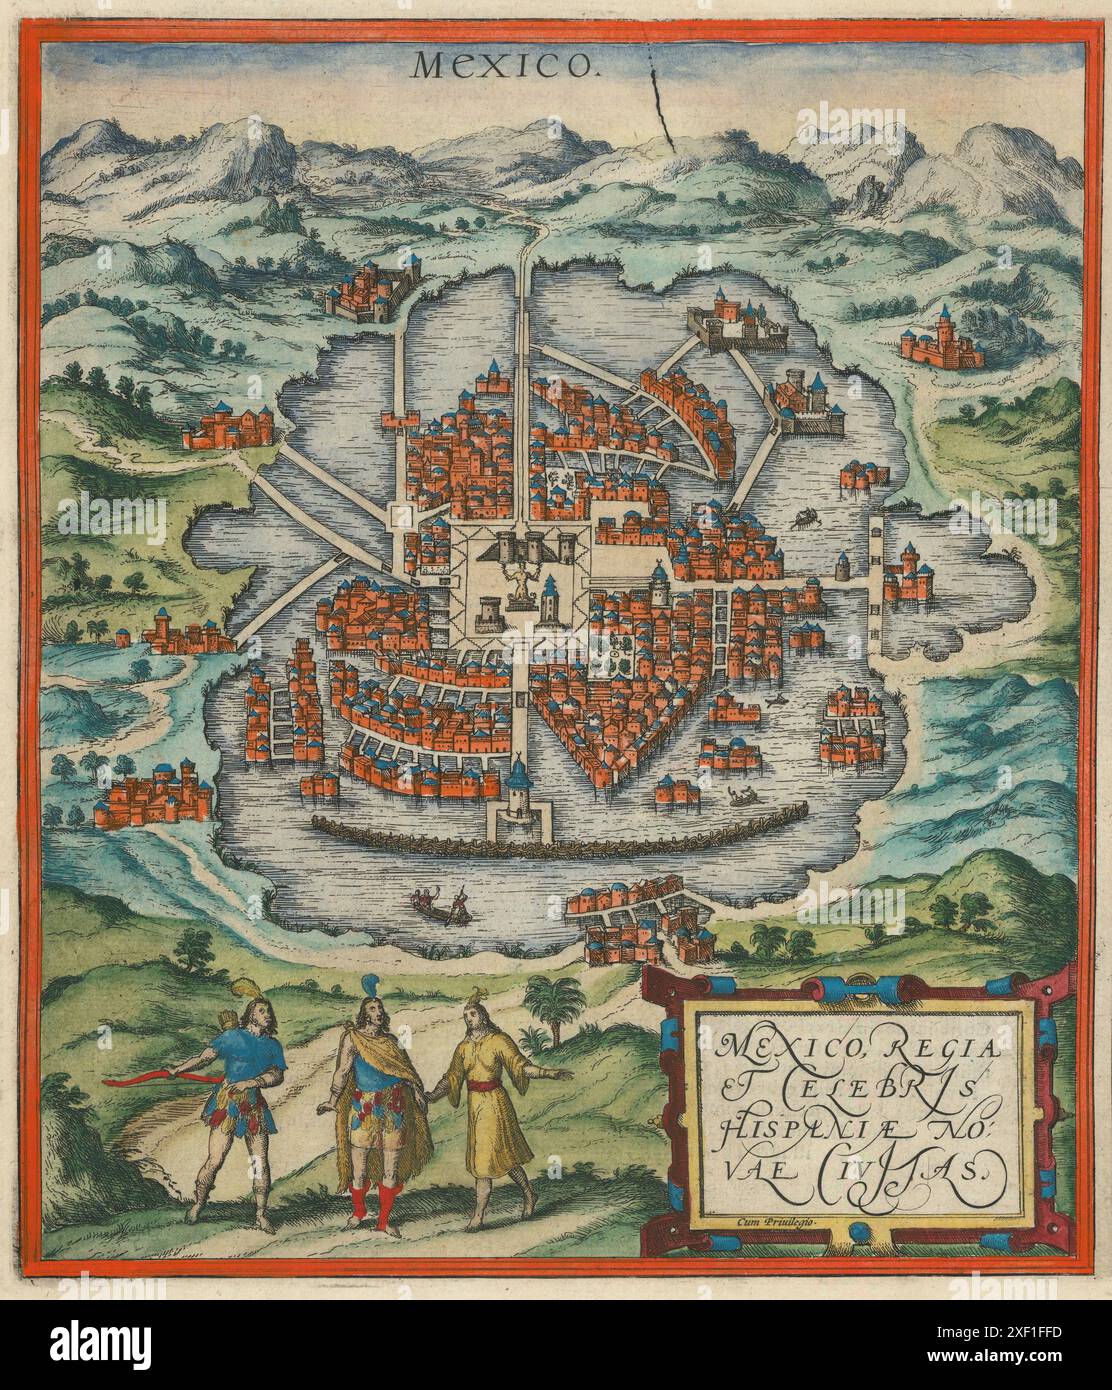 MEXICO.
MEXICO, REGIA
ET CELEBRIS
HISPANIÆ NO:
VAE CIVITAS.
Cum Priuilegio.
alamy
Image ID: 2XF1FFD
www.alamy.com